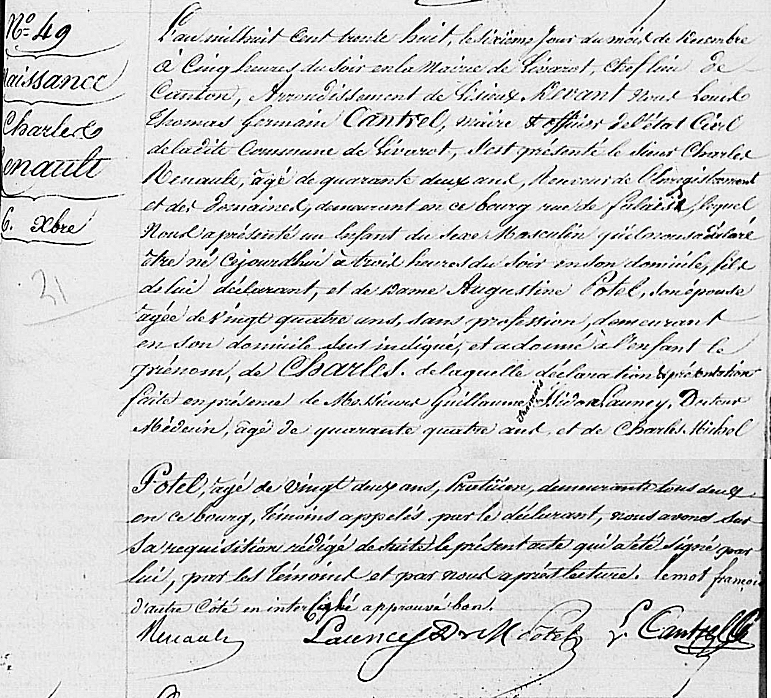 N° 49
Naissance
Charles
Renault
6. Xbre
21
L'an mil huit cent trente huit, le sixième jour du mois de Décembre
à Cinq heures du soir en la Mairie de Livarot, chef lieu de
Canton, Arrondissement de Lisieux Devant Nous Louis
Thomas Germain Cantrel, maire & officier de l'état Civil
de la dite Commune de Livarot, s'est présenté le sieur Charles
Renault, âgé de quarante deux ans, Receveur de l'Enregistrement
et des Domaines, demeurant en ce bourg rue de Falaise, lequel
Nous a présenté un Enfant du sexe Masculin qu'il nous a déclaré
être né Cejourd'hui à trois heures du Soir en son domicile, fils
de lui déclarant, et de Dame Augustine Potel, son épouse
âgée de vingt quatre ans, sans profession, demeurant
en son domicile sus indiqué, et a donné à l'enfant le
prénom, de Charles. de laquelle déclaration & présentation
faite en présence de Messieurs Guillaume françois Launey, Docteur
Médecin, âgé de quarante quatre ans, et de Charles Michel
Potel, âgé de vingt deux ans, Praticien, demeurants tous deux
en ce bourg, témoins appelés par le déclarant, nous avons sur
sa requisition rédigé de suite le présent acte qui a été signé par
lui, par les témoins et par nous après lecture. le mot françois
d'autre Côté en interligne approuvé bon.
Renault Launey D. M. Potel L. Cantrel